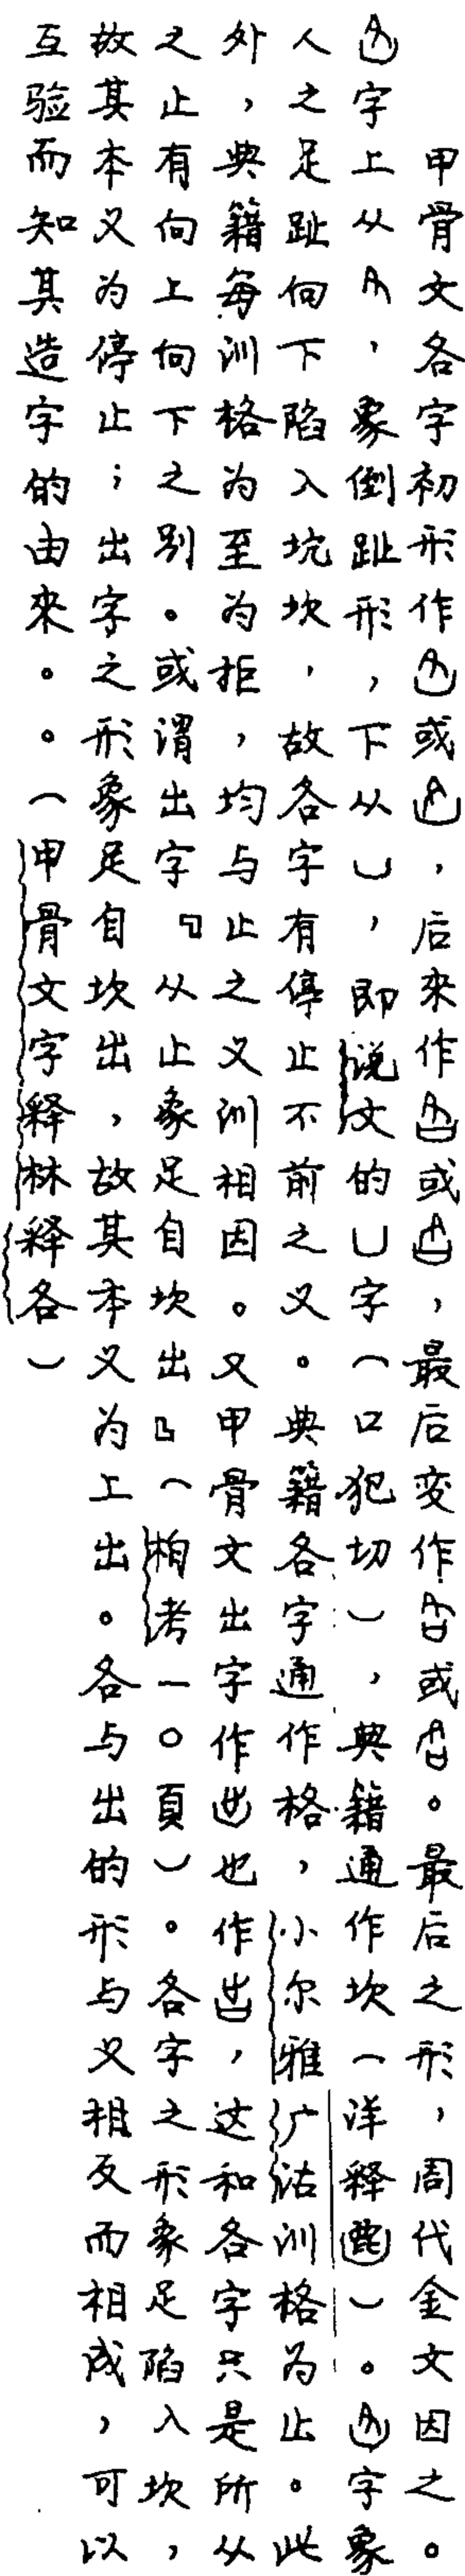 甲骨文各字初形作或，后來作或，最后变作或。最后之形，周代金文因之。
字上从，象倒趾形，下从凵，即说文的凵字（口犯切），典籍通作坎（洋释）。字象
人之足趾向下陷入坑坎，故各字有停止不前之义。典籍各字通作格，小尔雅广诂训格为止。此
外，典籍每训格为至为拒，均与止之义训相因。又甲骨文出字作也作，这和各字只是所从
之止有向上向下之别。或谓出字『从止象足自坎出』（柏考一〇頁）。各字之形象足陷入坎，
故其本义为停止；出字之形象足自坎出，故其本义为上出。各与出的形与义相反而相成，可以
互验而知其造字的由來。。（甲骨文字释林释各）